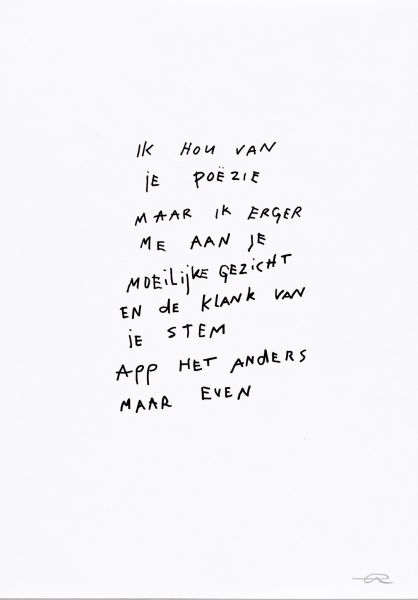 IK HOU VAN
jE POËZIE
MAAR IK ERGER
ME AAN JE
MOEilijkE GEZICHT
EN dE KLANK VAN
jE STEM
APP HET ANdERS
MAAR EVEN